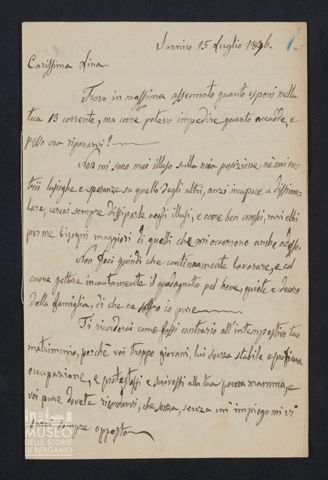 Sarnico 15 Luglio 1896. 1.
Carissima Lina
Trovo in massima assennato quanto esponi nella
tua 13 corrente, ma come potevo impedire quanto accadde, e
posso ora ripararvi? —
Non mi sono mai illuso sulla mia posizione, nè mai nu-
trii lusinghe e speranze su quella degli altri, anzi incapace a dissimu-
lare, cercai sempre dissiparle negli illusi, e come ben conosci, mai ebbi
per me bisogni maggiori di quelli che mi occorrono anche adesso.
Non feci quindi che continuamente lavorare, e col
cuore gettare incautamente il guadagnato pel bene, quiete e decoro
della famiglia, di che ne soffro io pure —
Ti ricorderai come fossi contrario all'intempestivo tuo
matrimonio, perchè voi troppo giovani, lui senza stabile e proficua
occupazione, e protestassi e scrivessi alla tua povera mamma, e
voi pure dovete ricordarvi, che senza, senza un impiego mi vi
sarei sempre opposto —
MUSEO
DELLE STORIE
DI BERGAMO